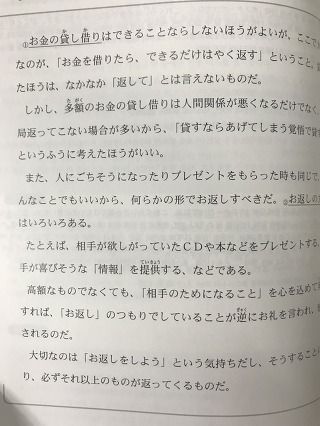 ①お金の貸し借りはできることならしないほうがよいが、ここで
なのが、「お金を借りたら、できるだけはやく返す」ということ。
たほうは、なかなか「返して」とは言えないものだ。
しかし、多額のお金の貸し借りは人間関係が悪くなるだけでなく
局返ってこない場合が多いから、「貸すならあげてしまう覚悟で貸
というふうに考えたほうがいい。
また、人にごちそうになったりプレゼントをもらった時も同じで、
んなことでもいいから、何らかの形でお返しすべきだ。②お返しの
はいろいろある。
たとえば、相手が欲しがっていたCDや本などをプレゼントする、
手が喜びそうな「情報」を提供する、などである。
高額なものでなくても、「相手のためになること」を心を込めて
すれば、「お返し」のつもりでしていることが逆にお礼を言われ、
されるのだ。
大切なのは「お返しをしよう」という気持ちだし、そうすること
り、必ずそれ以上のものが返ってくるものだ。